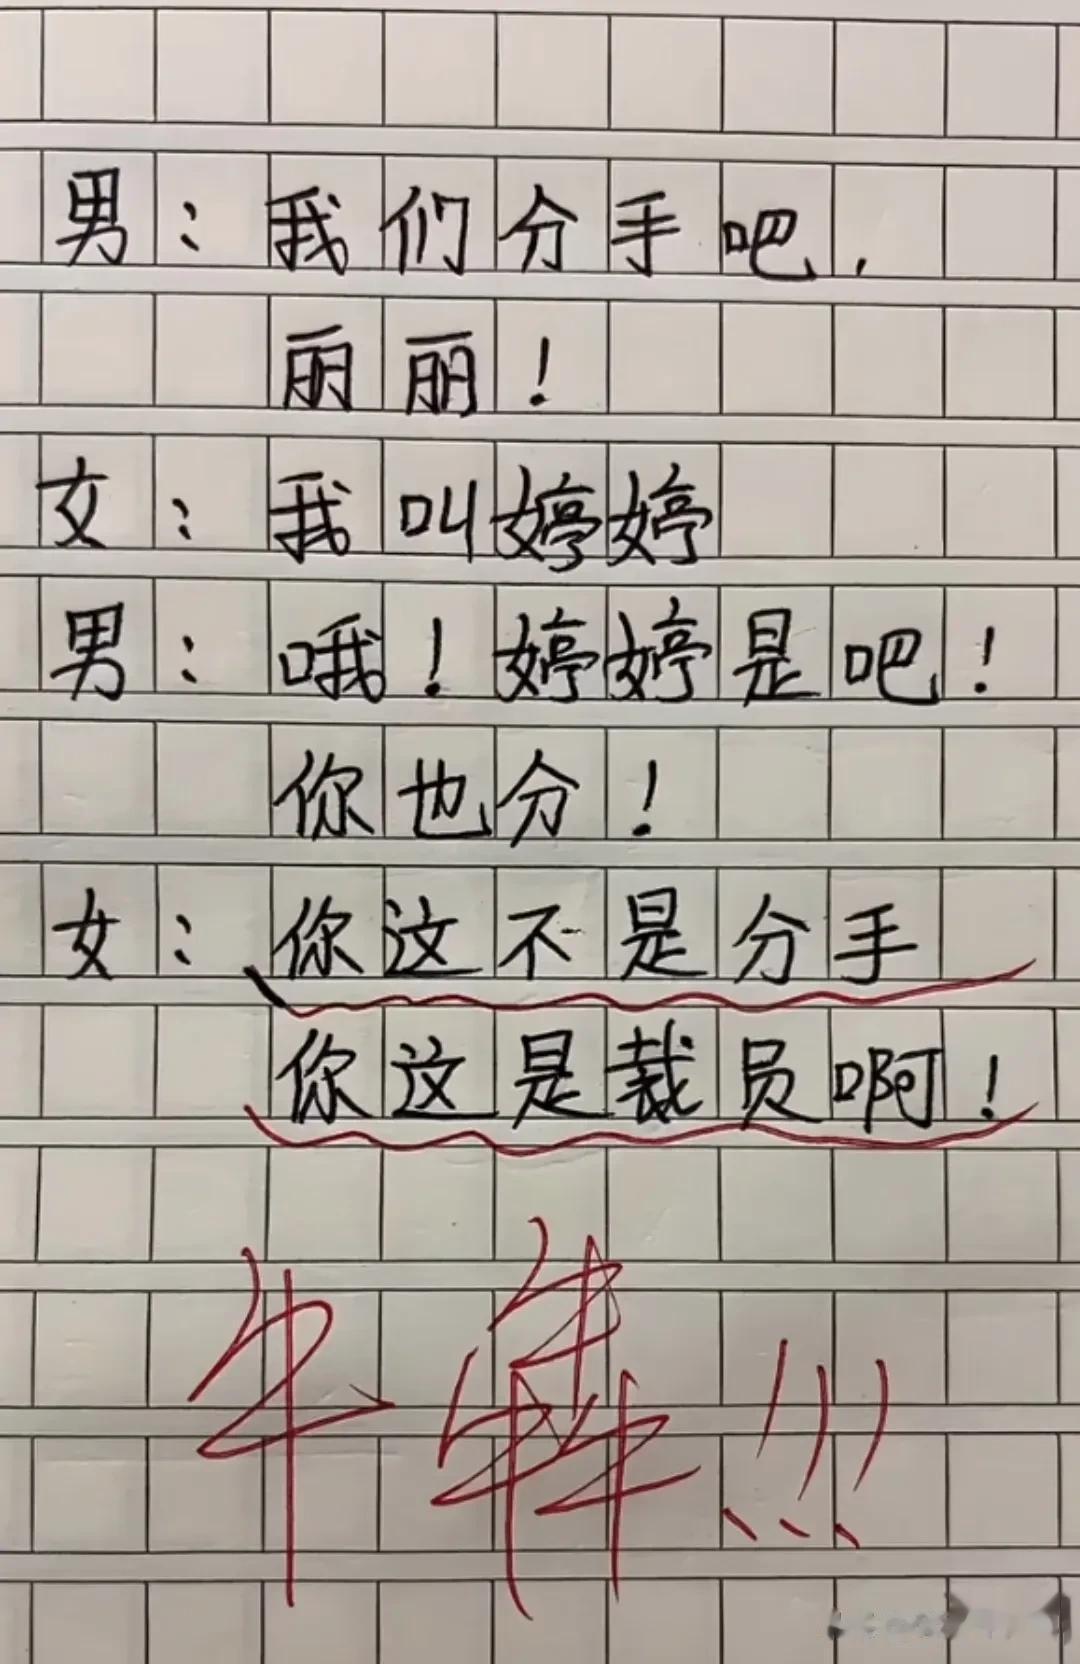 男：我们分手吧，
丽丽！
女：我叫婷婷
男：哦！婷婷是吧！
你也分！
女：你这不是分手
你这是裁员啊！
牛犇!!!